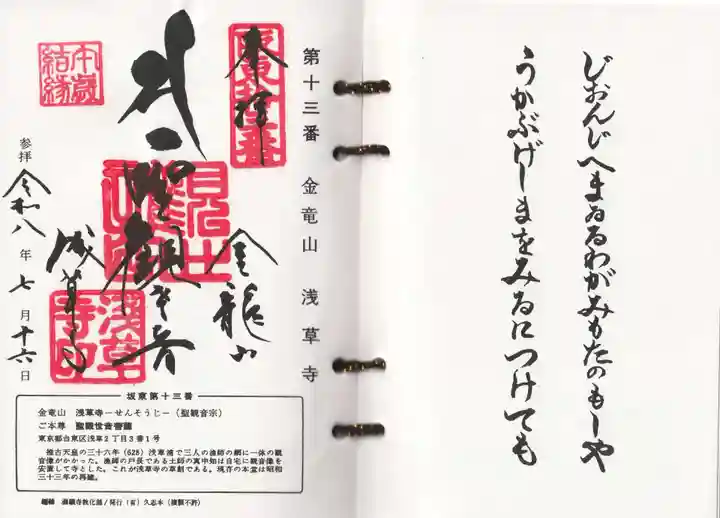 じおんじへまゐるわがみもたのもしや
うかぶげしまをみるにつけても
第十三番　金竜山　浅草寺
奉拝
坂東十三番
金龍山
聖観世音
浅草寺
浅草寺印
午歳
結縁
参拝 令和八年七月十六日
坂東第十三番
金竜山　浅草寺－せんそうじ－（聖観音宗）
ご本尊　聖観世音菩薩
東京都台東区浅草２丁目３番１号
推古天皇の三十六年（628）浅草浦で三人の漁師の網に一体の観
音像がかかった。漁師の戸長である土師の真中知は自宅に観音像を
安置して寺とした。これが浅草寺の草創である。現存の本堂は昭和
三十三年の再建。